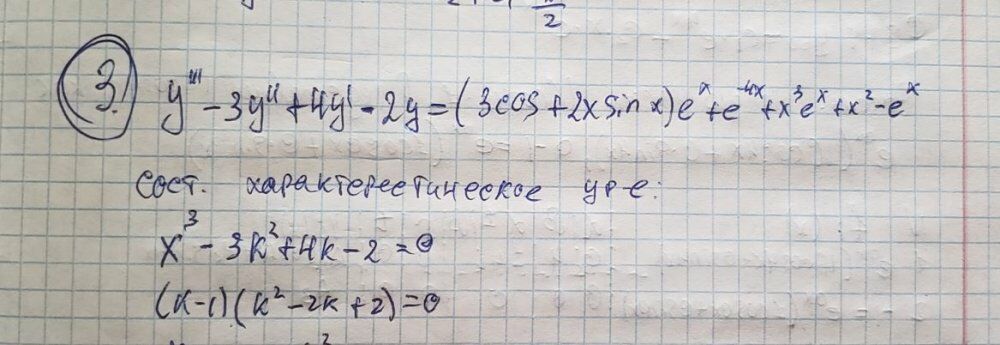 π/2
3. y''' - 3y'' + 4y' - 2y = (3cos + 2x sin x)e^x + e^-4x + x^3 e^x + x^2 - e^x
сост. характереетическое ур-е:
x^3 - 3k^2 + 4k - 2 = 0
(k-1)(k^2 - 2k + 2) = 0